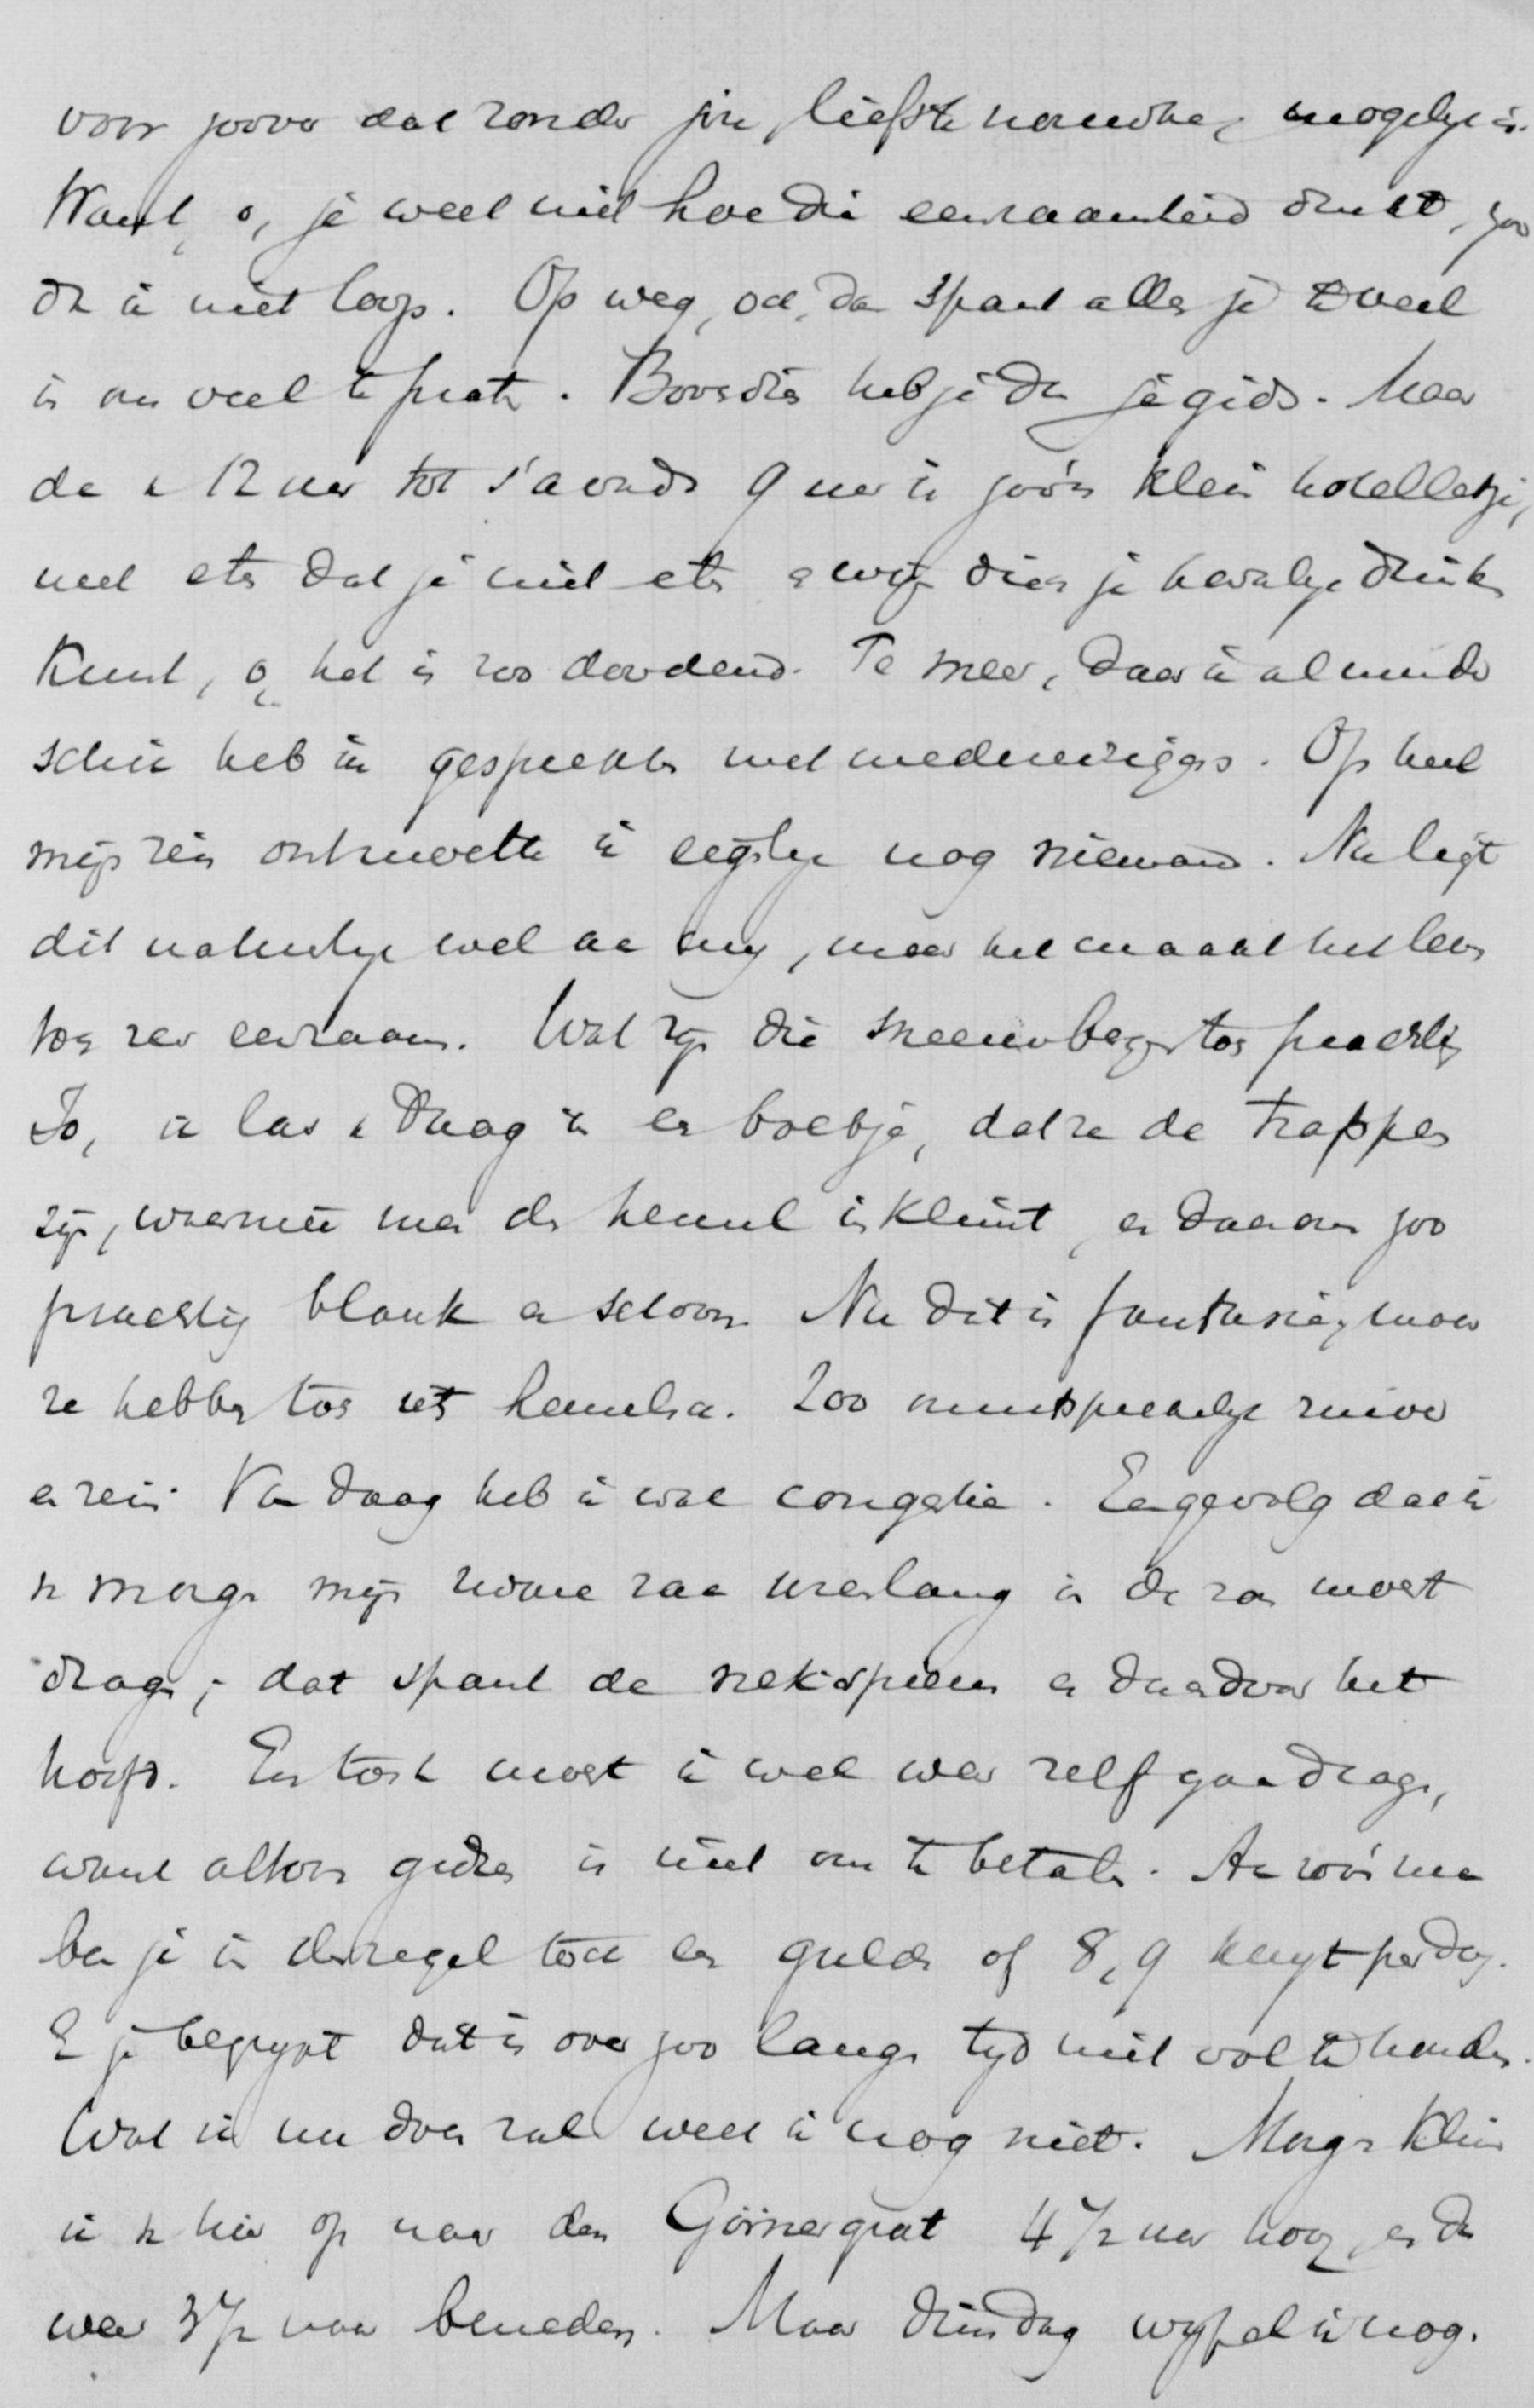 voor zoover dat zonder jou, liefste vrouwtje, mogelijk is.
Want, o, je weet niet hoe die eenzaamheid drukt, zoo
ik niet loop. Op weg, och, dan spant alles je en veel
is om veel te praten. Bovendien heb je dan je gids. Maar
van 12 uur tot s'avonds 9 uur in zoo'n klein hotelletje,
met eten dat je niet eten en wijn dien je nauwelijks drinken
kunt, o, het is zoo doodend. Te meer, daar ik al minder
schik heb in gesprekken met medereizigers. Op heel
mijn reis ontmoette ik eigenlijk nog niemand. Nu ligt
dit natuurlijk wel aan mij, maar het maakt het leven
toch zeer eenzaam. Wat zijn die sneeuwbergen toch prachtig
Jo, ik las vandaag in een boekje, dat ze de trappen
zijn, waarmee men den hemel in klimt, en daarom zoo
prachtig blank en schoon. Nu dit is fantasie, maar
ze hebben toch iets hemelsch. Zoo onuitsprekelijk zuiver
en rein. Vandaag heb ik wat congestie. Een gevolg dat ik
van morgen mijn zware zak urenlang in de zon moest
dragen; dat spant de nekspieren en daardoor het
hoofd. En toch moest ik wel weer zelf gaan dragen,
want altoos gidsen is niet om te betalen. Aan zoo'n man
ben je in den regel toch een gulden of 8, 9 kwijt per dag.
En je begrijpt dat is over zoo langen tijd niet vol te houden.
Wat ik nu doen zal weet ik nog niet. Morgen klim
ik van hier op naar den Görnergrat 4½ uur hoog, en dan
weer 3½ naar beneden. Maar Dinsdag twijfel ik nog.